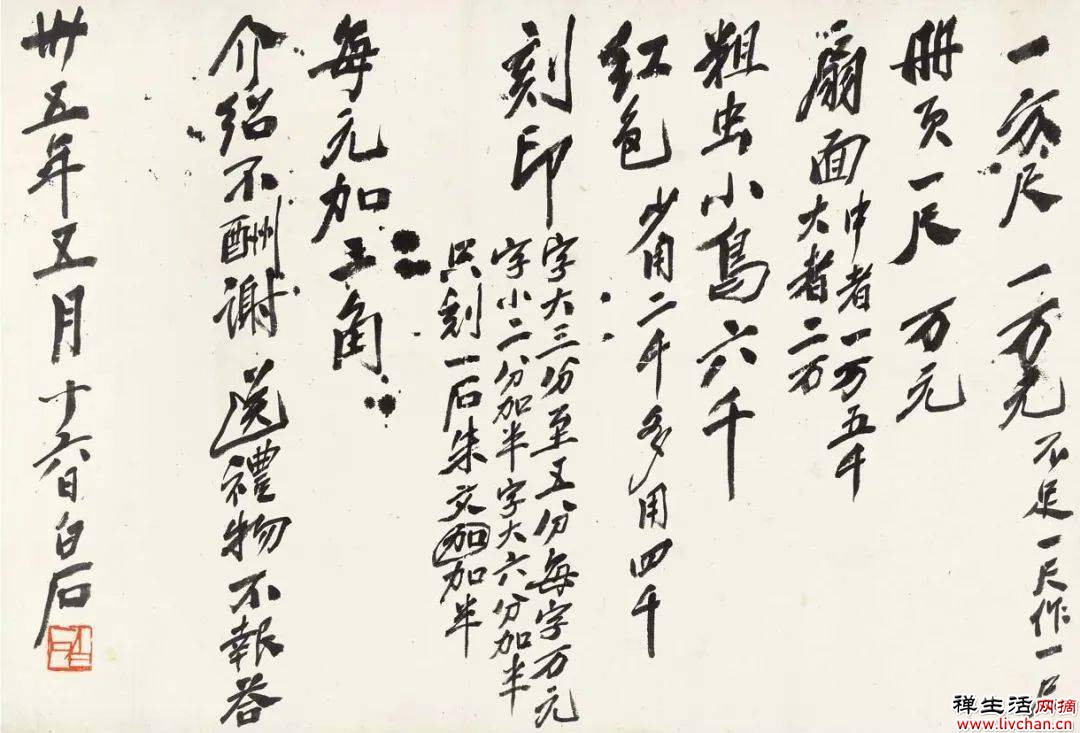 一方尺 一万元 不足一尺作一尺
册页一尺 万元
扇面 中者一万五千
大者二万
粗虫小鸟六千
红色 少用二千多用四千
刻印 字大三分至五分每字万元
字小二分加半字大六分加半
只刻一石朱文加加半
每元加三角
介绍不酬谢 送禮物不報答
卅五年五月十六日白石
禅生活网摘
www.livchan.cn